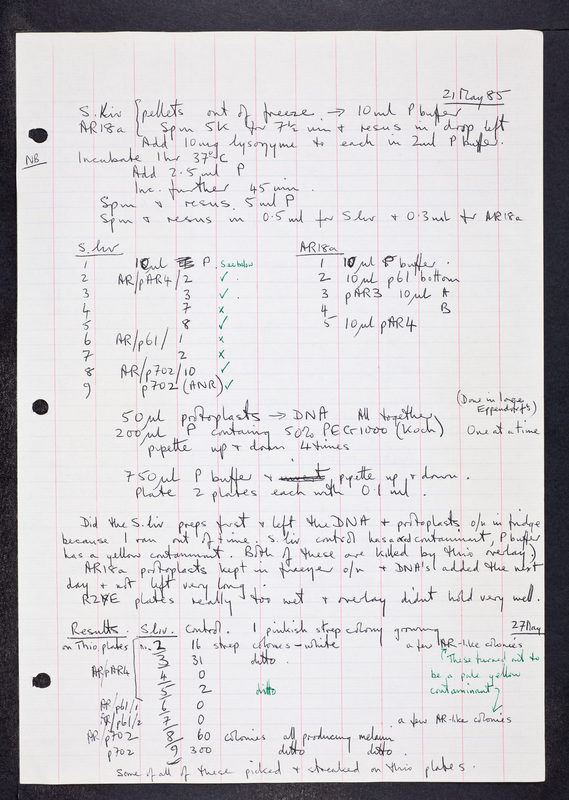 21 May 85
S. liv { pellets out of freeze. → 10 ml P buffer
AR18a { Spin 5K for 7½ min & resus in drop left
Add 10 mg lysozyme to each in 2 ml P buffer.
NB
Incubate 1 hr 37°C
Add 2.5 ml P
Inc. further 45 min.
Spin & resus 5 ml P
Spin & resus in 0.5 ml for S liv & 0.3 ml for AR18a
S. liv AR18a
1 10 µl P. See below 1 10 µl P buffer.
2 AR/pAR4/2 ✓ 2 10 µl p61 bottom
3 3 ✓. 3 pAR3 10 µl A
4 7 x 4 B
5 8 ✓ 5 10 µl pAR4
6 AR/p61/1 x
7 2 x
8 AR/p702/10 ✓
9 p702 (ANR) ✓
(Done in large Eppendorfs)
50 µl protoplasts → DNA All together
200 µl P containing 50% PEG 1000 (Koch) One at a time
pipette up & down 4 times
750 µl P buffer & pipette up & down.
Plate 2 plates each with 0.1 ml.
Did the S. liv preps first & left the DNA & protoplasts o/n in fridge
because I ran out of time. S. liv control has a contaminant, P buffer
has a yellow contaminant. Both of these are killed by thio overlay.)
AR18a protoplasts kept in freezer o/n & DNA's added the next
day & not left very long.
R2YE plates really too wet & overlay didn't hold very well.
27 May
Results. S. liv. Control. 1 pinkish strep colony growing
on Thio plates no. 2 16 strep colonies - white a few AR-like colonies
AR/pAR4 3 31 ditto.
These turned out to
be a pale yellow
contaminant
4 0
5 2 ditto
AR/p61/1 6 0
AR/p61/2 7 0 a few AR-like colonies
AR/p702 8 60 colonies all producing melanin
p702 9 300 ditto ditto.
Some of all of these picked & streaked on thio plates.